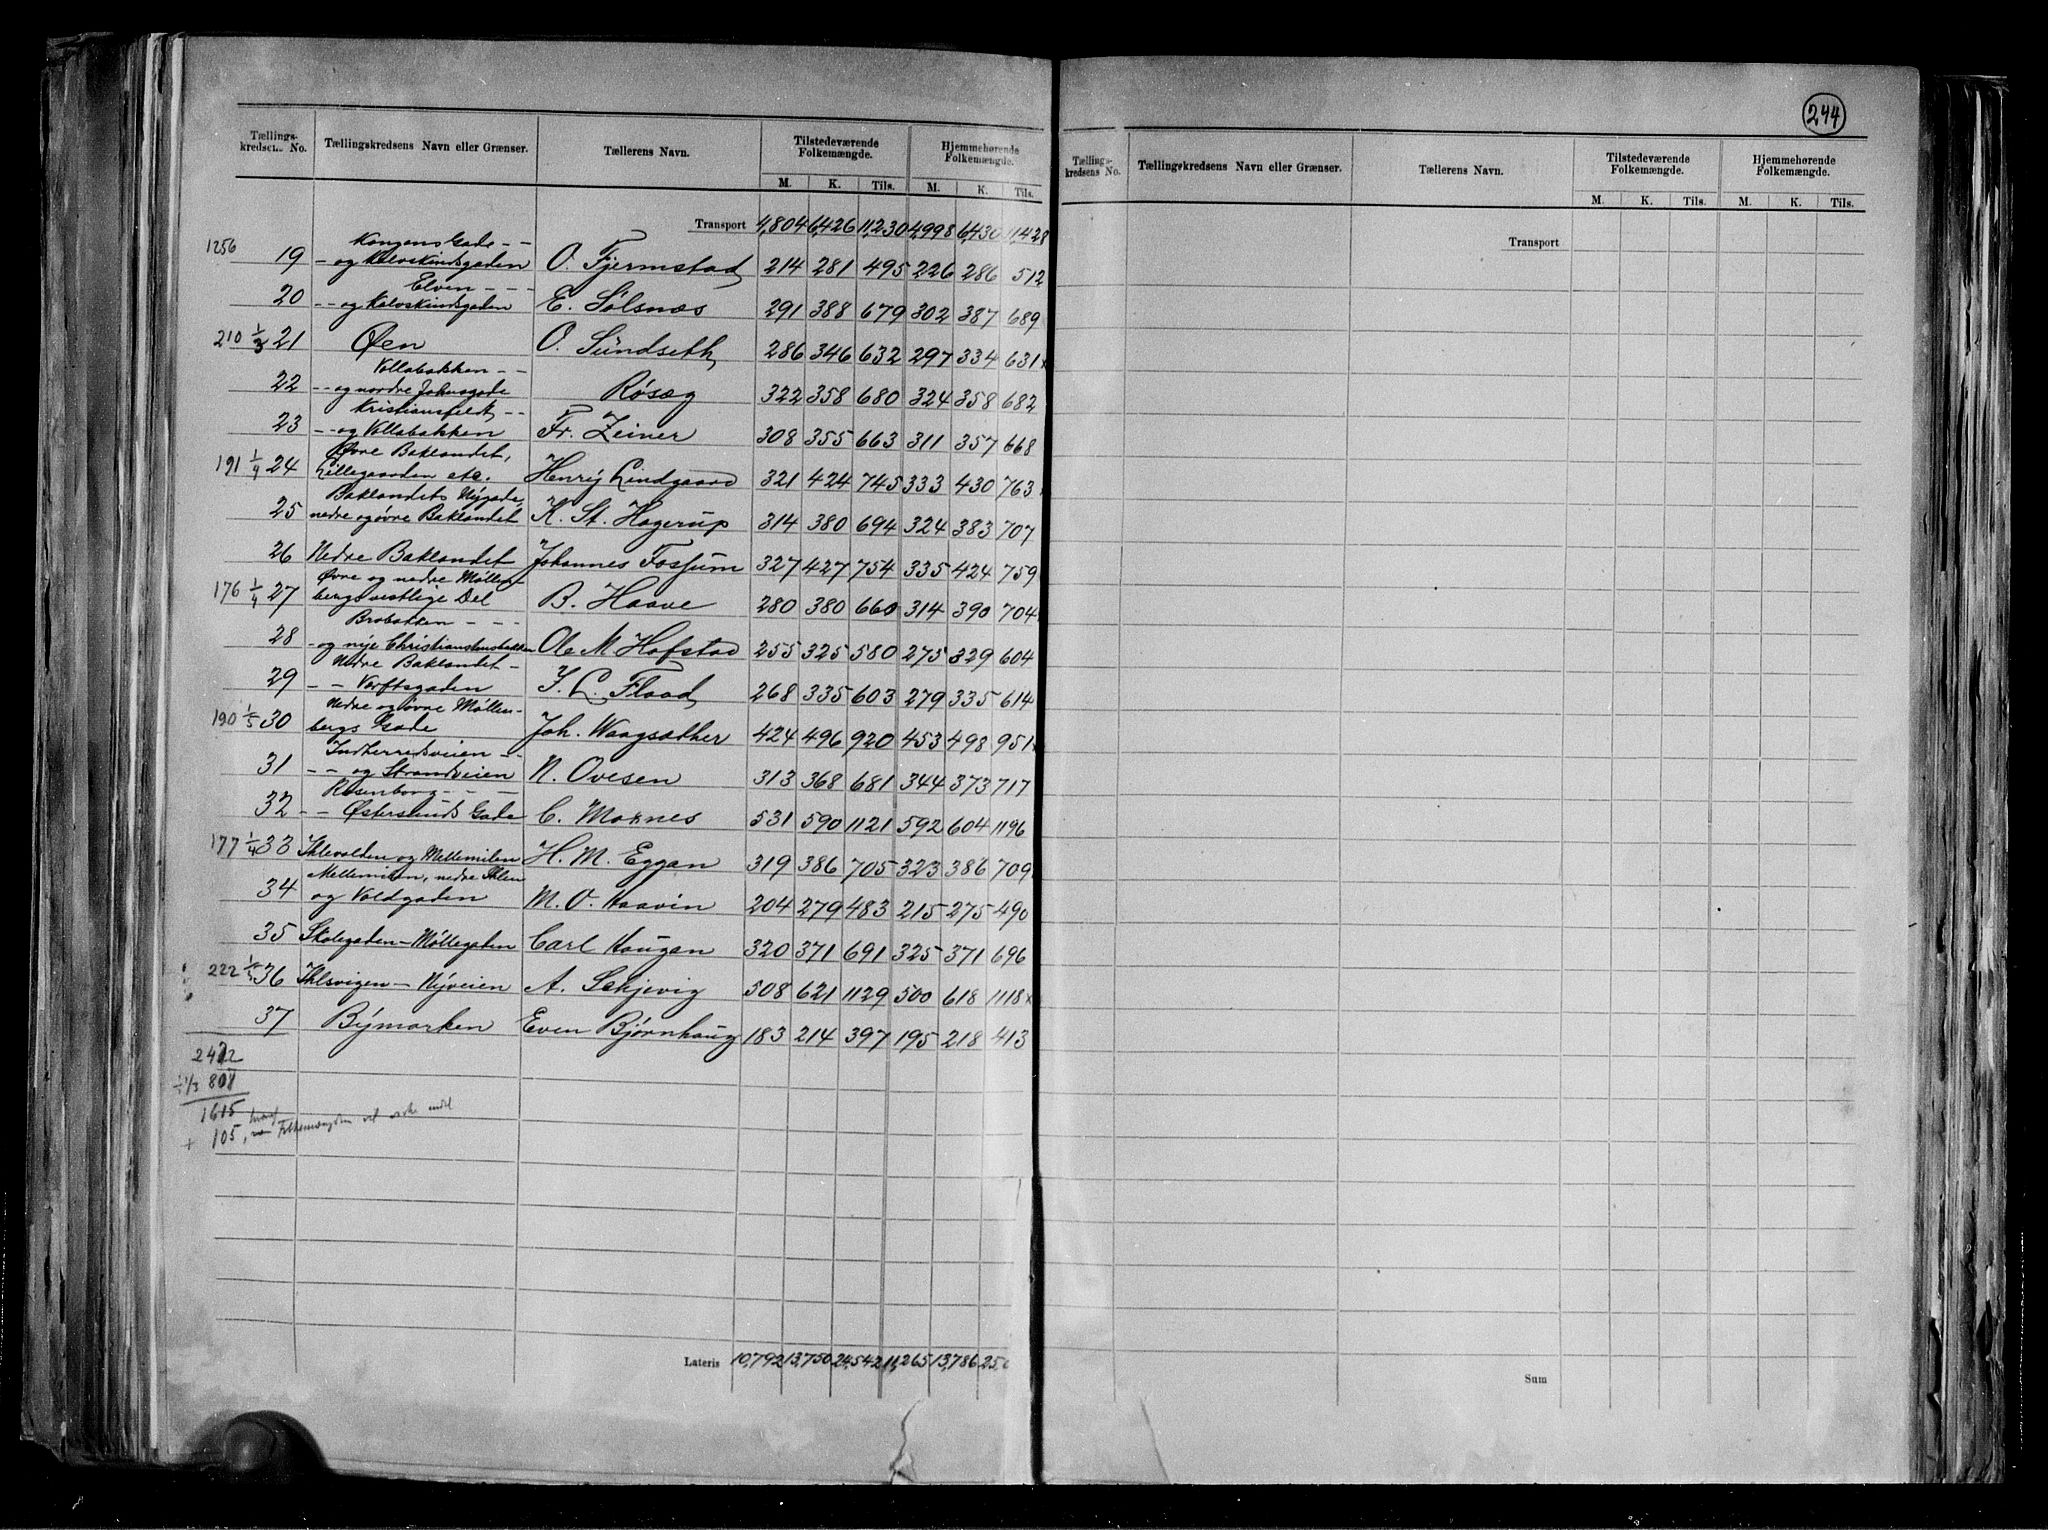 244
Tællings-kredsens No. Tællingskredsens Navn eller Grænser. Tællerens Navn. Tilstedeværende Folkemængde. Hjemmehørende Folkemængde.
M. K. Tils. M. K. Tils.
Transport 4,804 6,426 11,230 4,998 6,430 11,428
Kongens Gade - -
1256 19 - og Kalvskindsgaden O. Fjermstad 214 281 495 226 286 512
Elven - - -
20 - - og Kalvskindsgaden E. Sølsnæs 291 388 679 302 387 689
210 1/3 21 Øen O. Sundseth 286 346 632 297 334 631
Vollabakken - -
22 - - og nordre Johnsgade Røsæg 322 358 680 324 358 682
Kristiansfeldt - -
23 - - og Vollabakken Fr. Zeiner 308 355 663 311 357 668
Øvre Baklandet,
191 1/4 24 Lillegaarden etc. Henry Lindgaard 321 424 745 333 430 763
Baklandets Nygade,
25 nedre og øvre Baklandet K. St. Hagerup 314 380 694 324 383 707
26 Nedre Baklandet Johannes Fossum 327 427 754 335 424 759
Øvre og nedre Møllen-
176 1/4 27 bergs vestlige Del B. Haave 280 380 660 314 390 704
Brobakken - - -
28 - og nye Christianstensbakken Ole M Hofstad 255 325 580 275 329 604
Nedre Baklandet -
29 - - Verftsgaden I. L. Flaad 268 335 603 279 335 614
Nedre og øvre Møllen-
190 1/5 30 bergs Gade Joh. Waagsæther 424 496 920 453 498 951
Indherredsveien - -
31 - - og Strandveien N. Ovesen 313 368 681 344 373 717
Rosenborg - - -
32 - - Østersunds Gade C. Moknes 531 590 1121 592 604 1196
177 1/4 33 Ihlevolden og Mellemilen H. M. Eggan 319 386 705 323 386 709
Mellemilen, nedre Ihlen
34 og Voldgaden M. O. Haavin 204 279 483 215 275 490
35 Skolegaden - Møllegaden Carl Haugan 320 371 691 325 371 696
222 1/5 36 Ihlsvigen - Nyveien A. Schjevig 508 621 1129 500 618 1118
37 Bymarken Even Bjørnhaug 183 214 397 195 218 413
2422
÷ 1/3 808
1615
+ 105, Folkemængden
Lateris 10,792 13,750 24,542 11,265 13,786
Tællings-kredsens No. Tællingskredsens Navn eller Grænser. Tællerens Navn. Tilstedeværende Folkemængde. Hjemmehørende Folkemængde.
M. K. Tils. M. K. Tils.
Transport
Sum